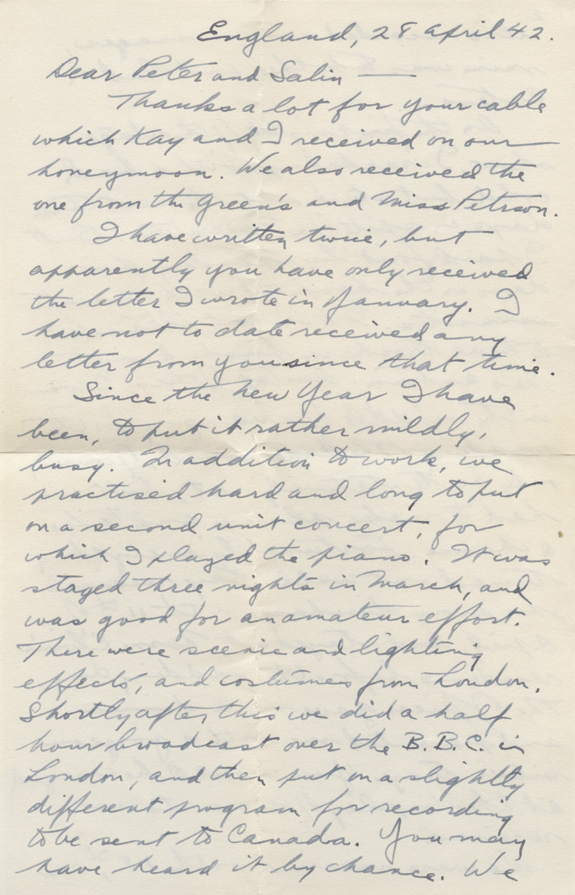 England, 28 April 42.
Dear Peter and Salin —
Thanks a lot for your cable
which Kay and I received on our
honeymoon. We also received the
one from the Green's and Miss Peterson.
I have written twice, but
apparently you have only received
the letter I wrote in January. I
have not to date received any
letter from you since that time.
Since the new Year I have
been, to put it rather mildly,
busy. In addition to work, we
practised hard and long to put
on a second unit concert, for
which I played the piano. It was
staged three nights in March, and
was good for an amateur effort.
There were scenic and lighting
effects, and costumes from London.
Shortly after this we did a half
hour broadcast over the B.B.C. in
London, and then put on a slightly
different program for recording
to be sent to Canada. You may
have heard it by chance. We